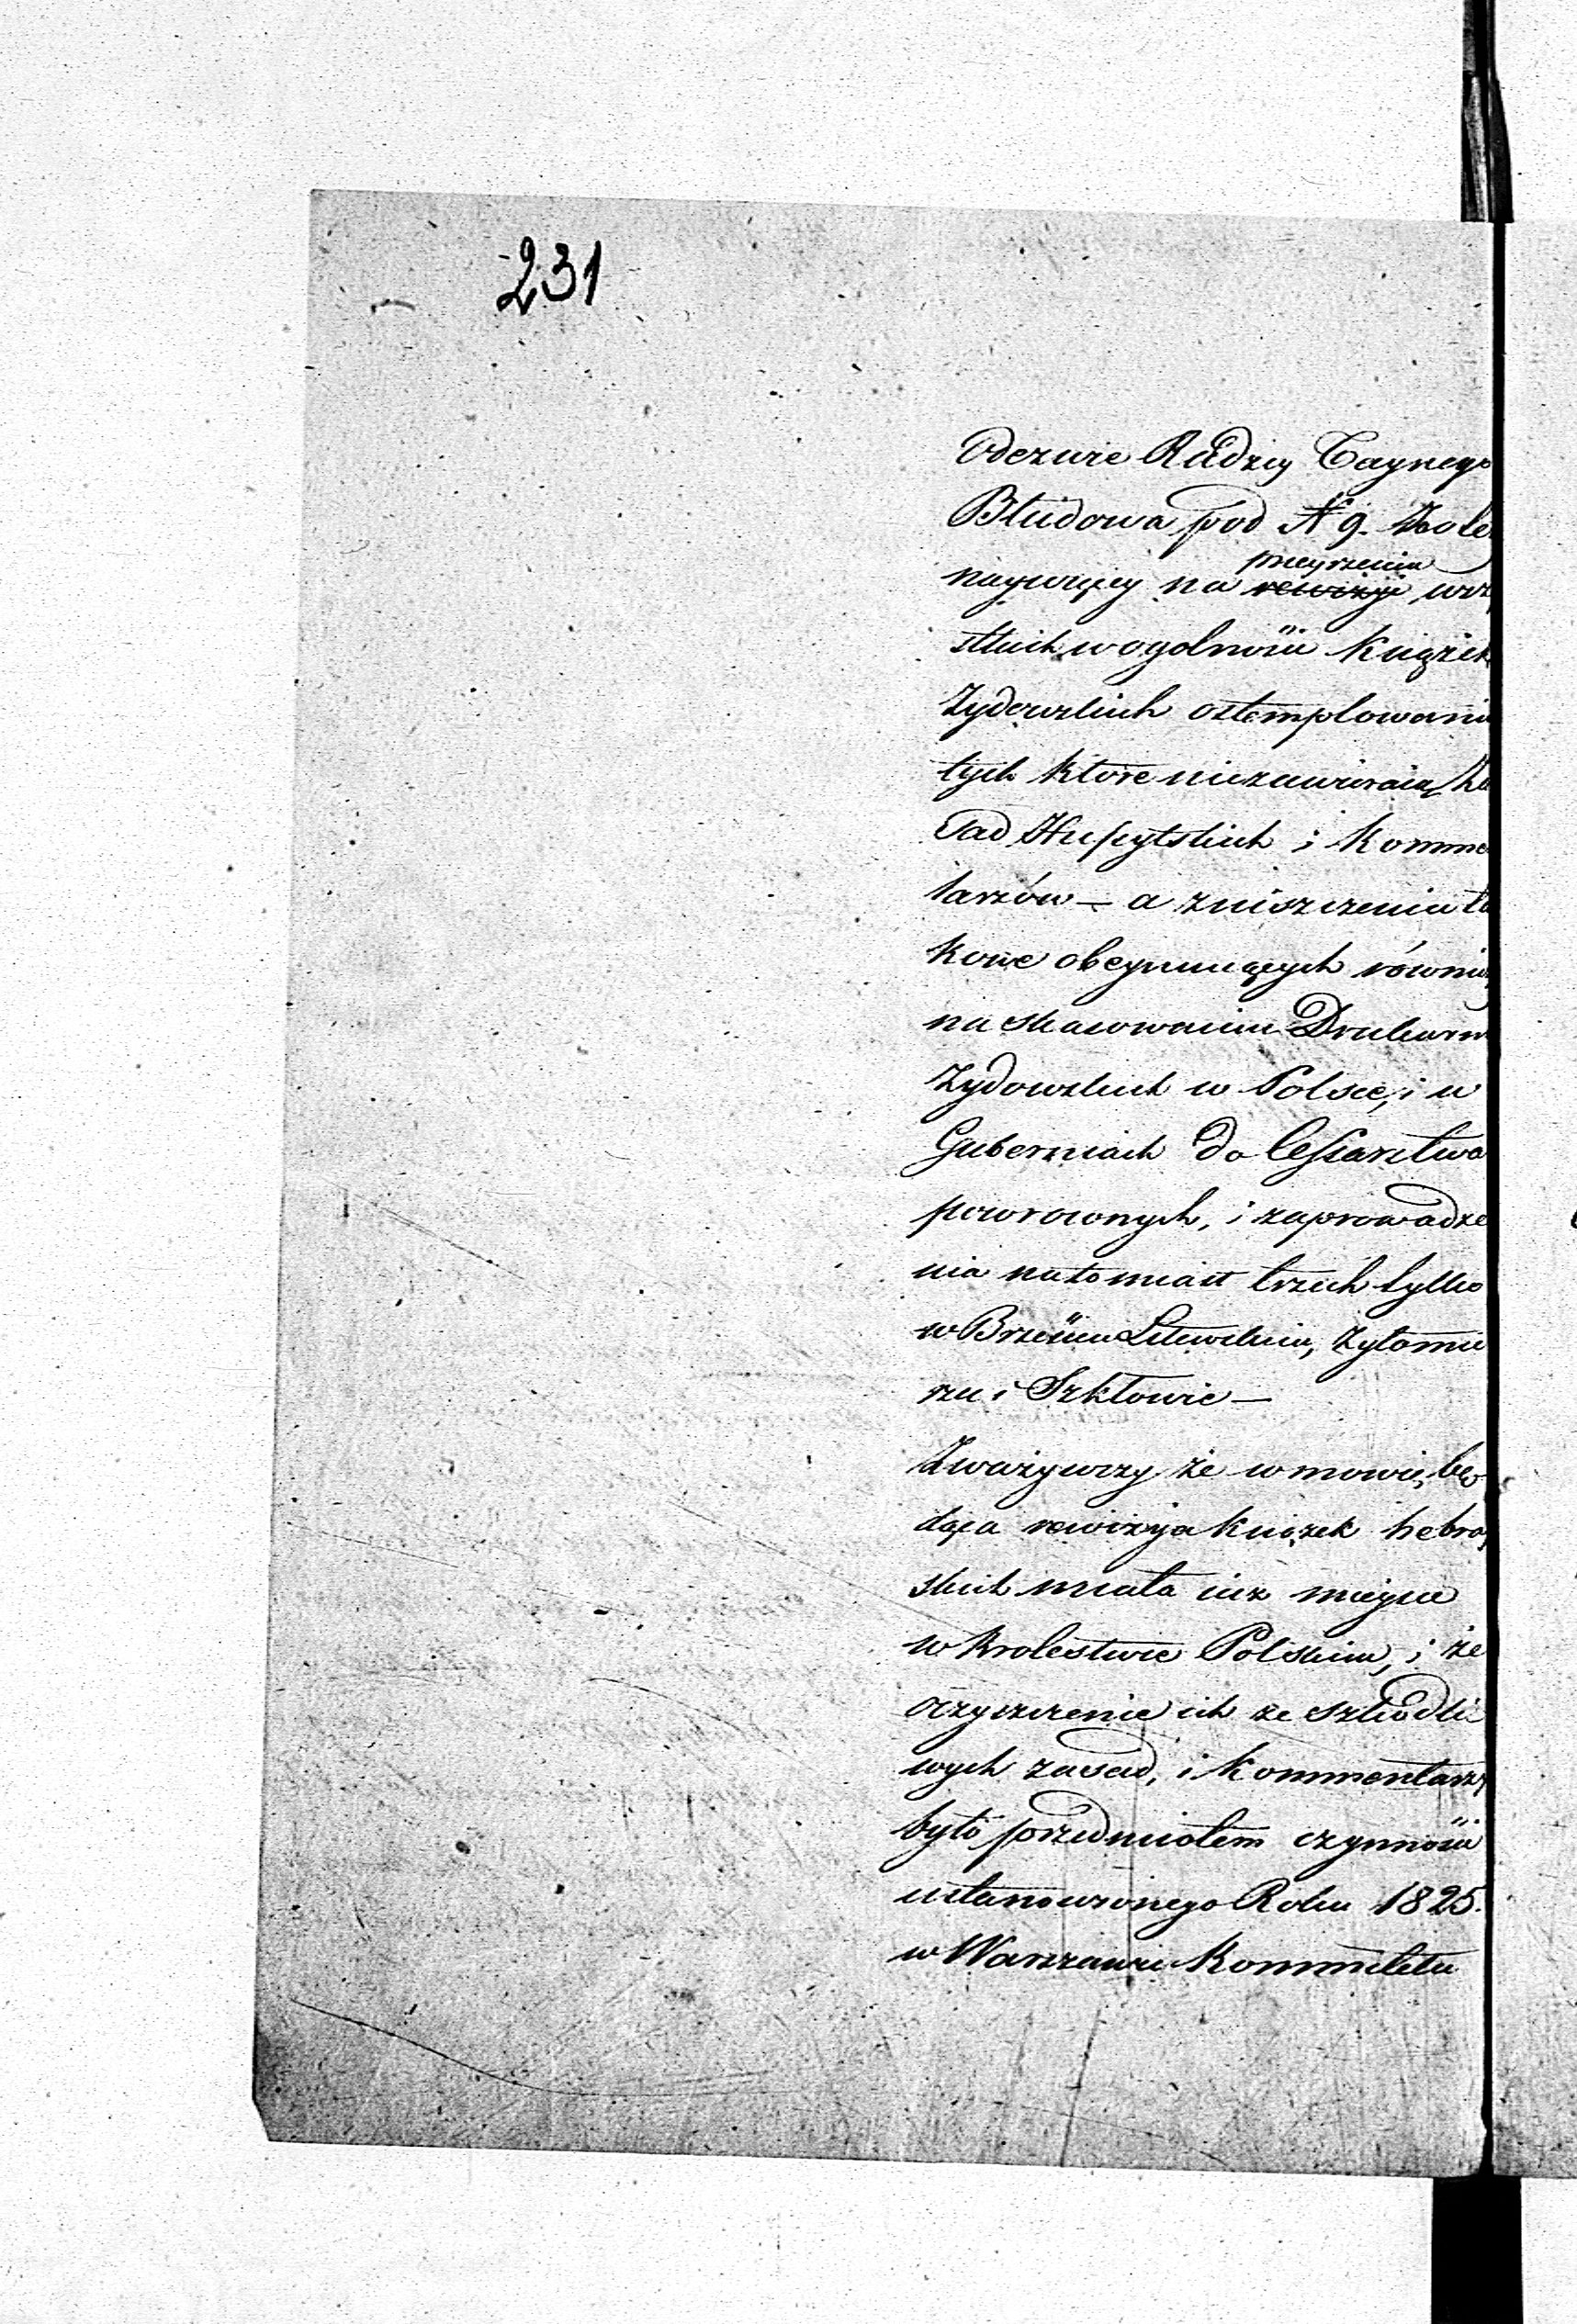 231
Odezwie Radzcy Taynego
Błudowa pod N 9. Zale
przeyrzeniu
naywięcy na rewizyi wsz
stkich wogolności Książek
Żydowskich ostemplowaniu
tych które niezawieraią Za
sad Hussytskich i Komme
tarzów — a zniszczeniu ta
kowe obeymuiących równie
na skasowaniu Drukarn
Żydowskich w Polsce, i w
Guberniach do Cessarstwa
powroconych, i zaprowadze
nia natomiast trzech tylko
w Brześciu Litewskim, Żytomie
rzu i Szkłowie —
Zważywszy że w mowie bę
dąca rewizya książek hebray
skich miała iuż mieysce
w Krolestwie Polskim, i że
oczyszczenie ich ze szkodli
wych zasad, i Kommentarzy
było przedmiotem czynności
ustanowionego Roku 1825.
w Warszawie Kommitetu